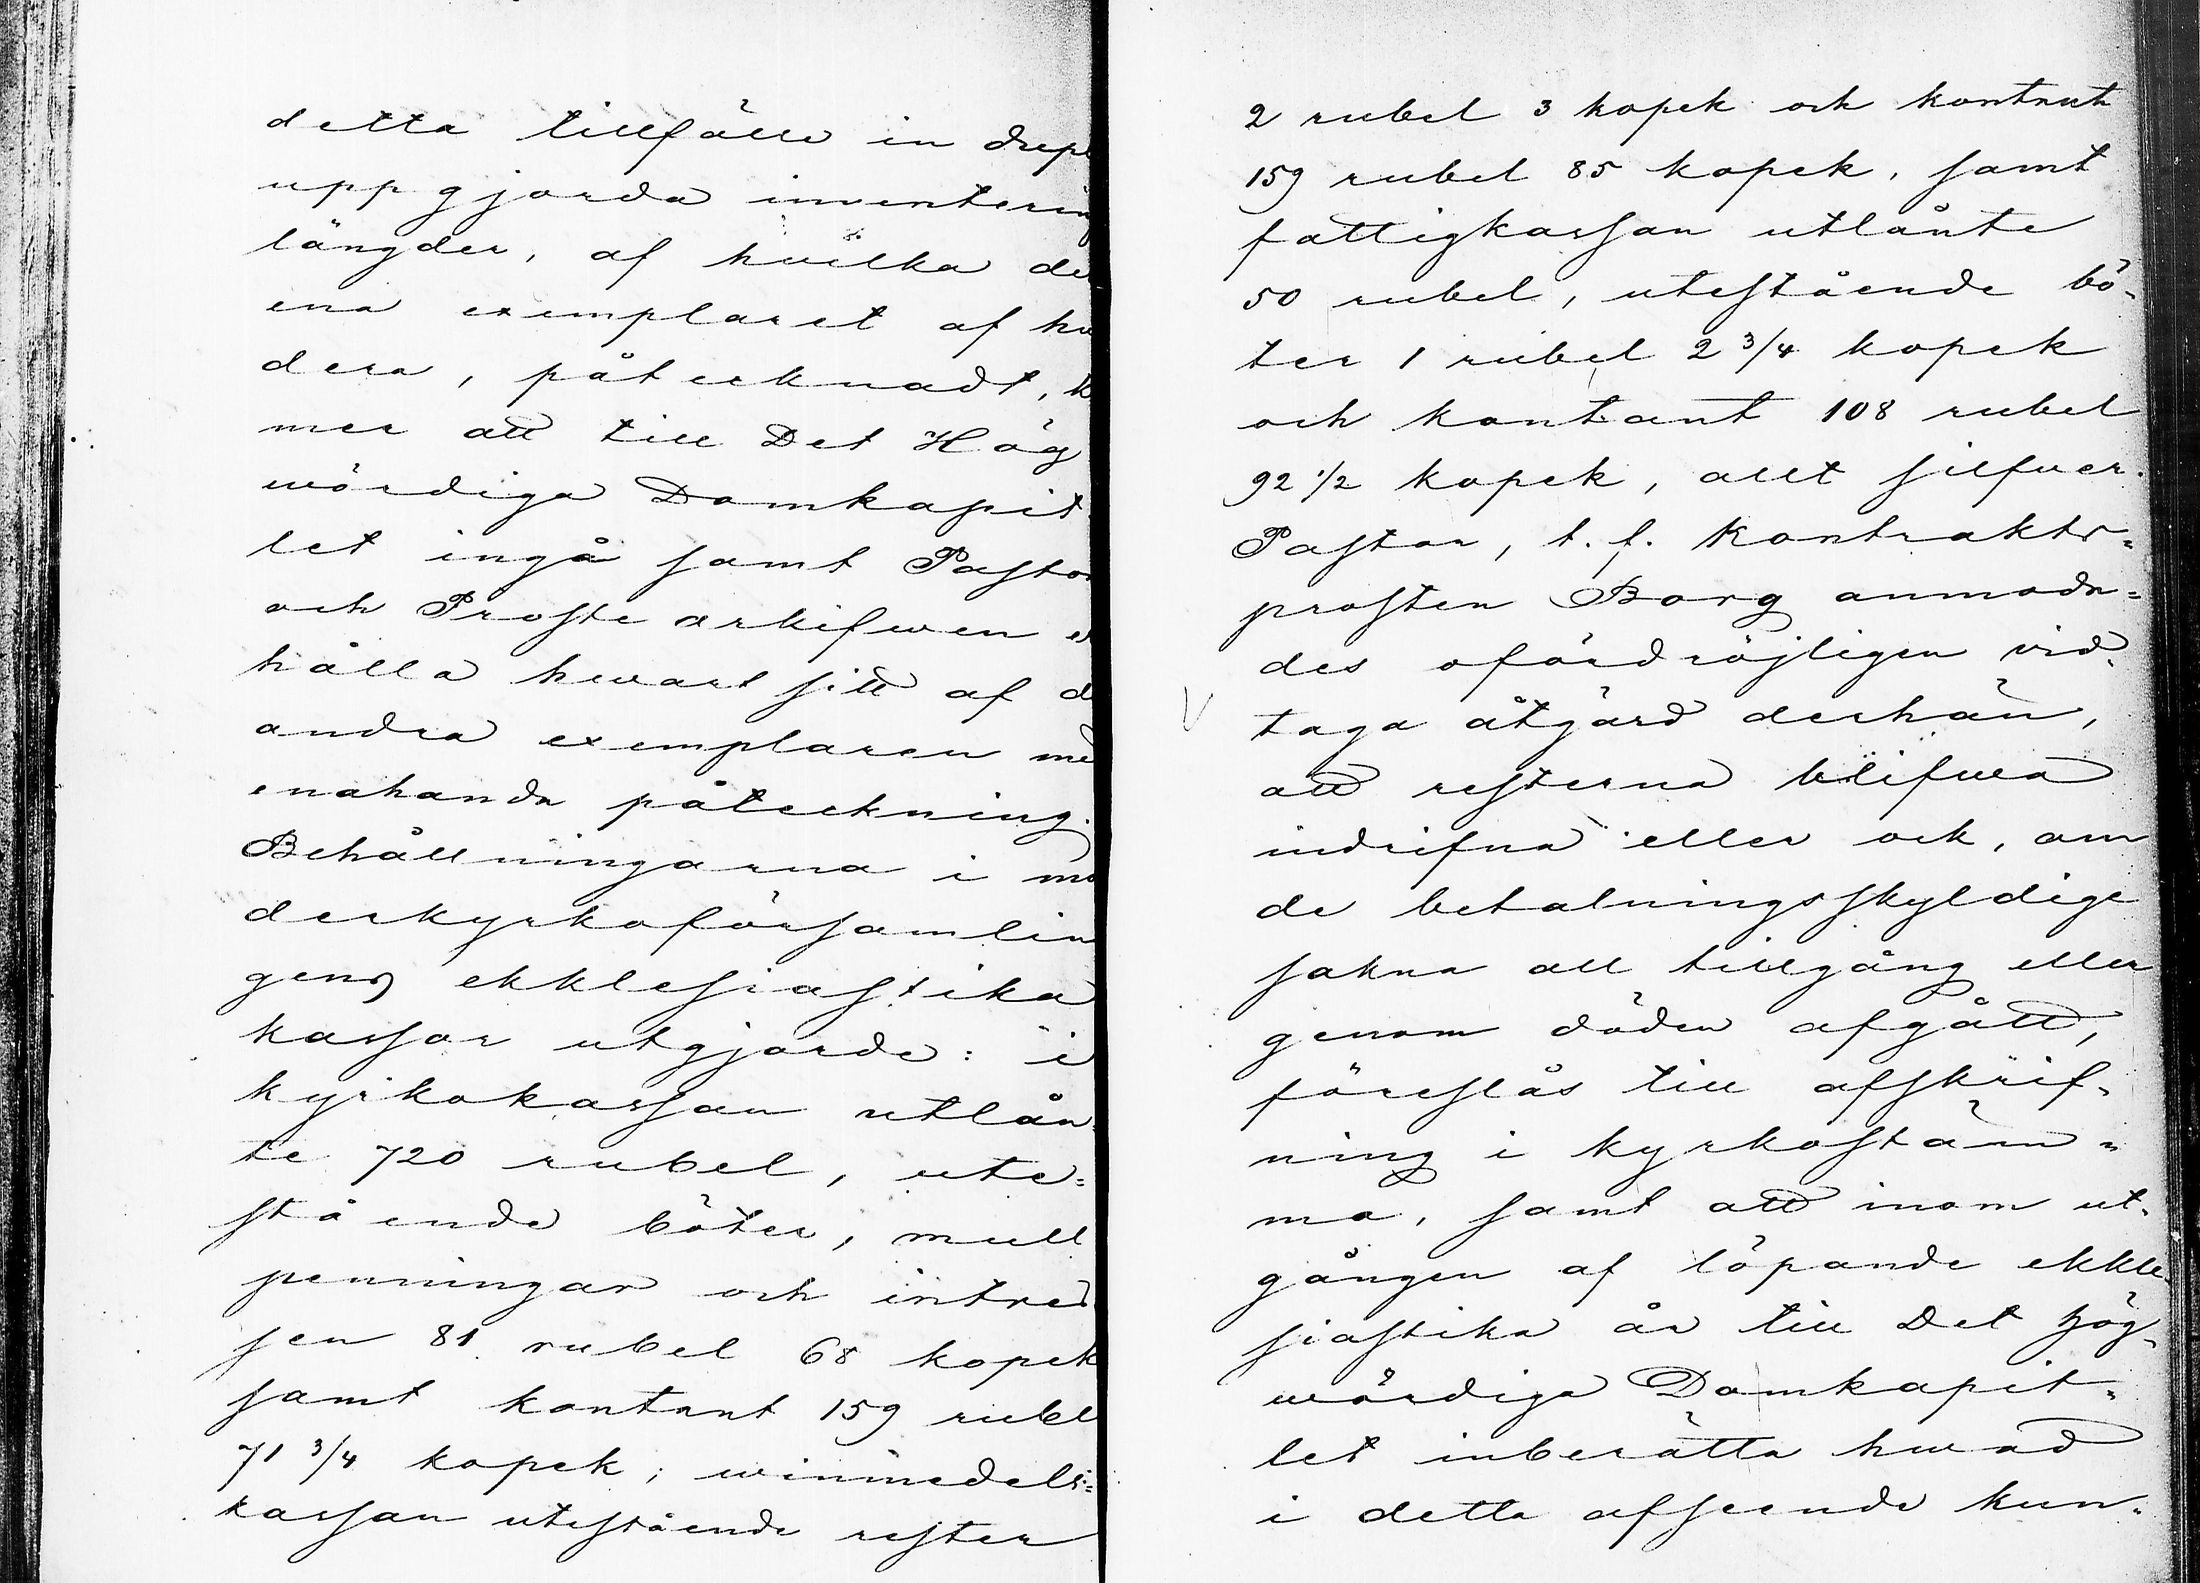 detta tillfälle in
uppgjorda inventering
längder, af hvilka de
ena exemplaret af hv
dera, påtecknadt, k
mer att till Det Hög
wördiga Domkapit
let ingå samt Pastor
och Proste arkifwen e
hålla hwart sitt af d
andra exemplaren me
enahanda påteckning.
Behållningarna i mo
derkyrkoförsamlin
gens ekklesiastika
kassor utgjorde: i
kyrkokassan utlån-
te 720 rubel, ute=
stående böter, mull
penningar och intres
sen 81 rubel 68 kopek
samt kontant 159 rubel
71 3/4 kopek; winmedels=
kassan utestående rester
2 rubel 3 kopek och kontant
159 rubel 85 kopek, samt
fattigkassan utlånte
50 rubel, utestående bö-
ter 1 rubel 2 3/4 kopek
och kontant 108 rubel
92 1/2 kopek, allt silfwer.
Pastor, t. f. Kontrakts=
prosten Borg anmoda=
des ofördröjligen vid-
taga åtgärd derhän,
att resterna blifwa
indrifna eller ock, om
de betalningsskyldige
sakna all tillgång eller
genom döden afgått,
föreslås till afskrif-
ning i kyrkostäm=
ma, samt att inom ut-
gången af löpande ekkle
siastika år till Det Hög-
wördiga Domkapit-
let inberätta hwad
i detta afseende kun-